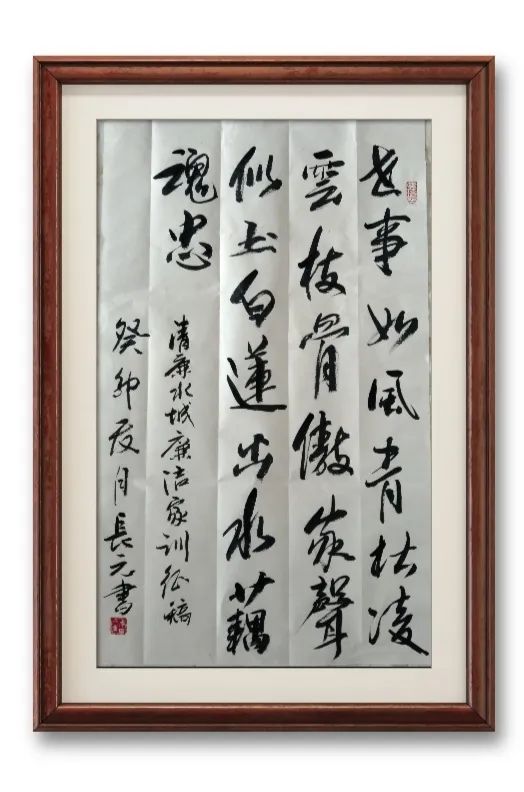 世事如風青松凌
雲枝骨傲家聲
似玉白蓮出水藕
魂忠
清廉水城廉洁家训征稿
癸卯夏月長元書